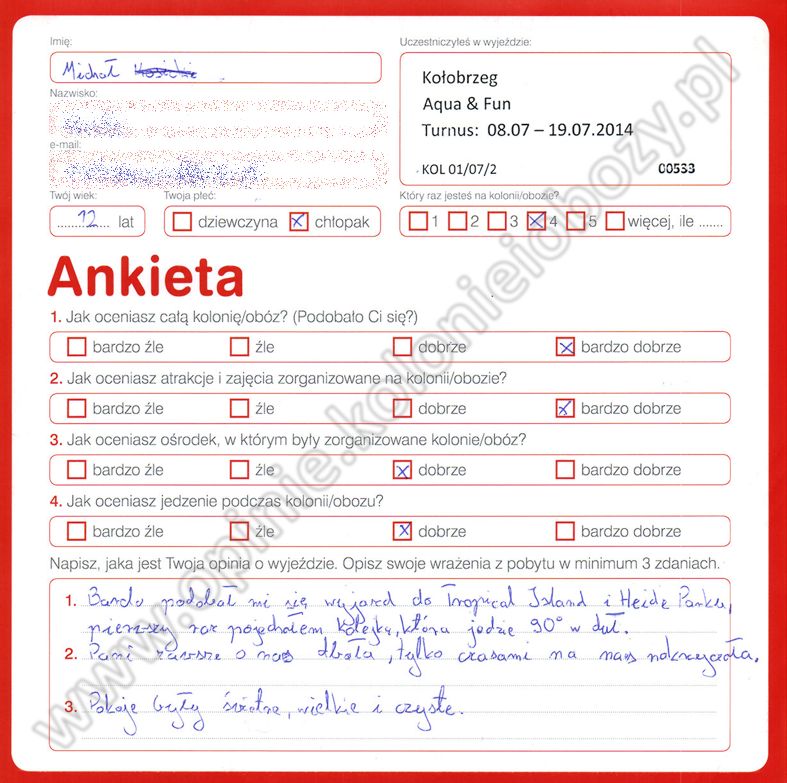 Imię:
Michał
Nazwisko:
e-mail:
Twój wiek:
12 lat
Twoja płeć:
dziewczyna chłopak
Uczestniczyłeś w wyjeździe:
Kołobrzeg
Aqua & Fun
Turnus: 08.07 – 19.07.2014
KOL 01/07/2 00533
Który raz jesteś na kolonii/obozie?
1 2 3 4 5 więcej, ile .......
Ankieta
1. Jak oceniasz całą kolonię/obóz? (Podobało Ci się?)
bardzo źle źle dobrze bardzo dobrze
2. Jak oceniasz atrakcje i zajęcia zorganizowane na kolonii/obozie?
bardzo źle źle dobrze bardzo dobrze
3. Jak oceniasz ośrodek, w którym były zorganizowane kolonie/obóz?
bardzo źle źle dobrze bardzo dobrze
4. Jak oceniasz jedzenie podczas kolonii/obozu?
bardzo źle źle dobrze bardzo dobrze
Napisz, jaka jest Twoja opinia o wyjeździe. Opisz swoje wrażenia z pobytu w minimum 3 zdaniach.
1. Bardo podobał mi się wyjazd do Tropical Island i Heide Parku,
pierwszy raz pojechałem kolejką, która jedzie 90° w dół.
2. Pani zawsze o nas dbała, tylko czasami na nas nakrzyczała.
3. Pokoje były świetne, wielkie i czyste.
www.opinie.kolonieiobozy.pl